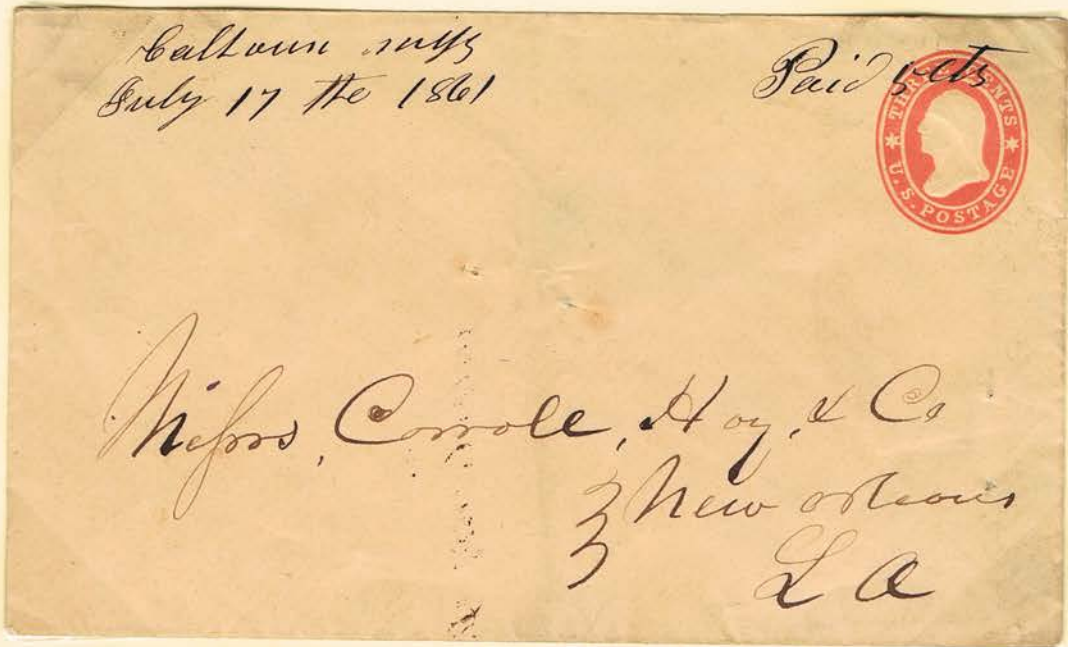 Calhoun miss
July 17 the 1861
Paid 5 cts
THREE CENTS
U.S. POSTAGE
Messrs, Carroll, Hoy, & Co
New orleans
L a